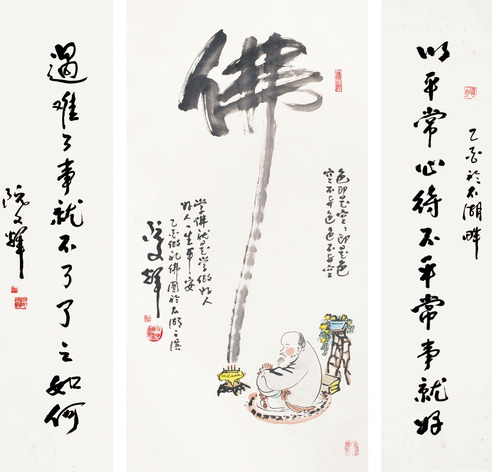 以平常心待不平常事就好
乙亥於太湖畔
佛
色即是空空即是色
空不异色色不异空
學佛就是學做好人
好人一生平安
乙亥做礼佛图於太湖之滨
阮文輝
遇难了事就不了了之如何
阮文輝